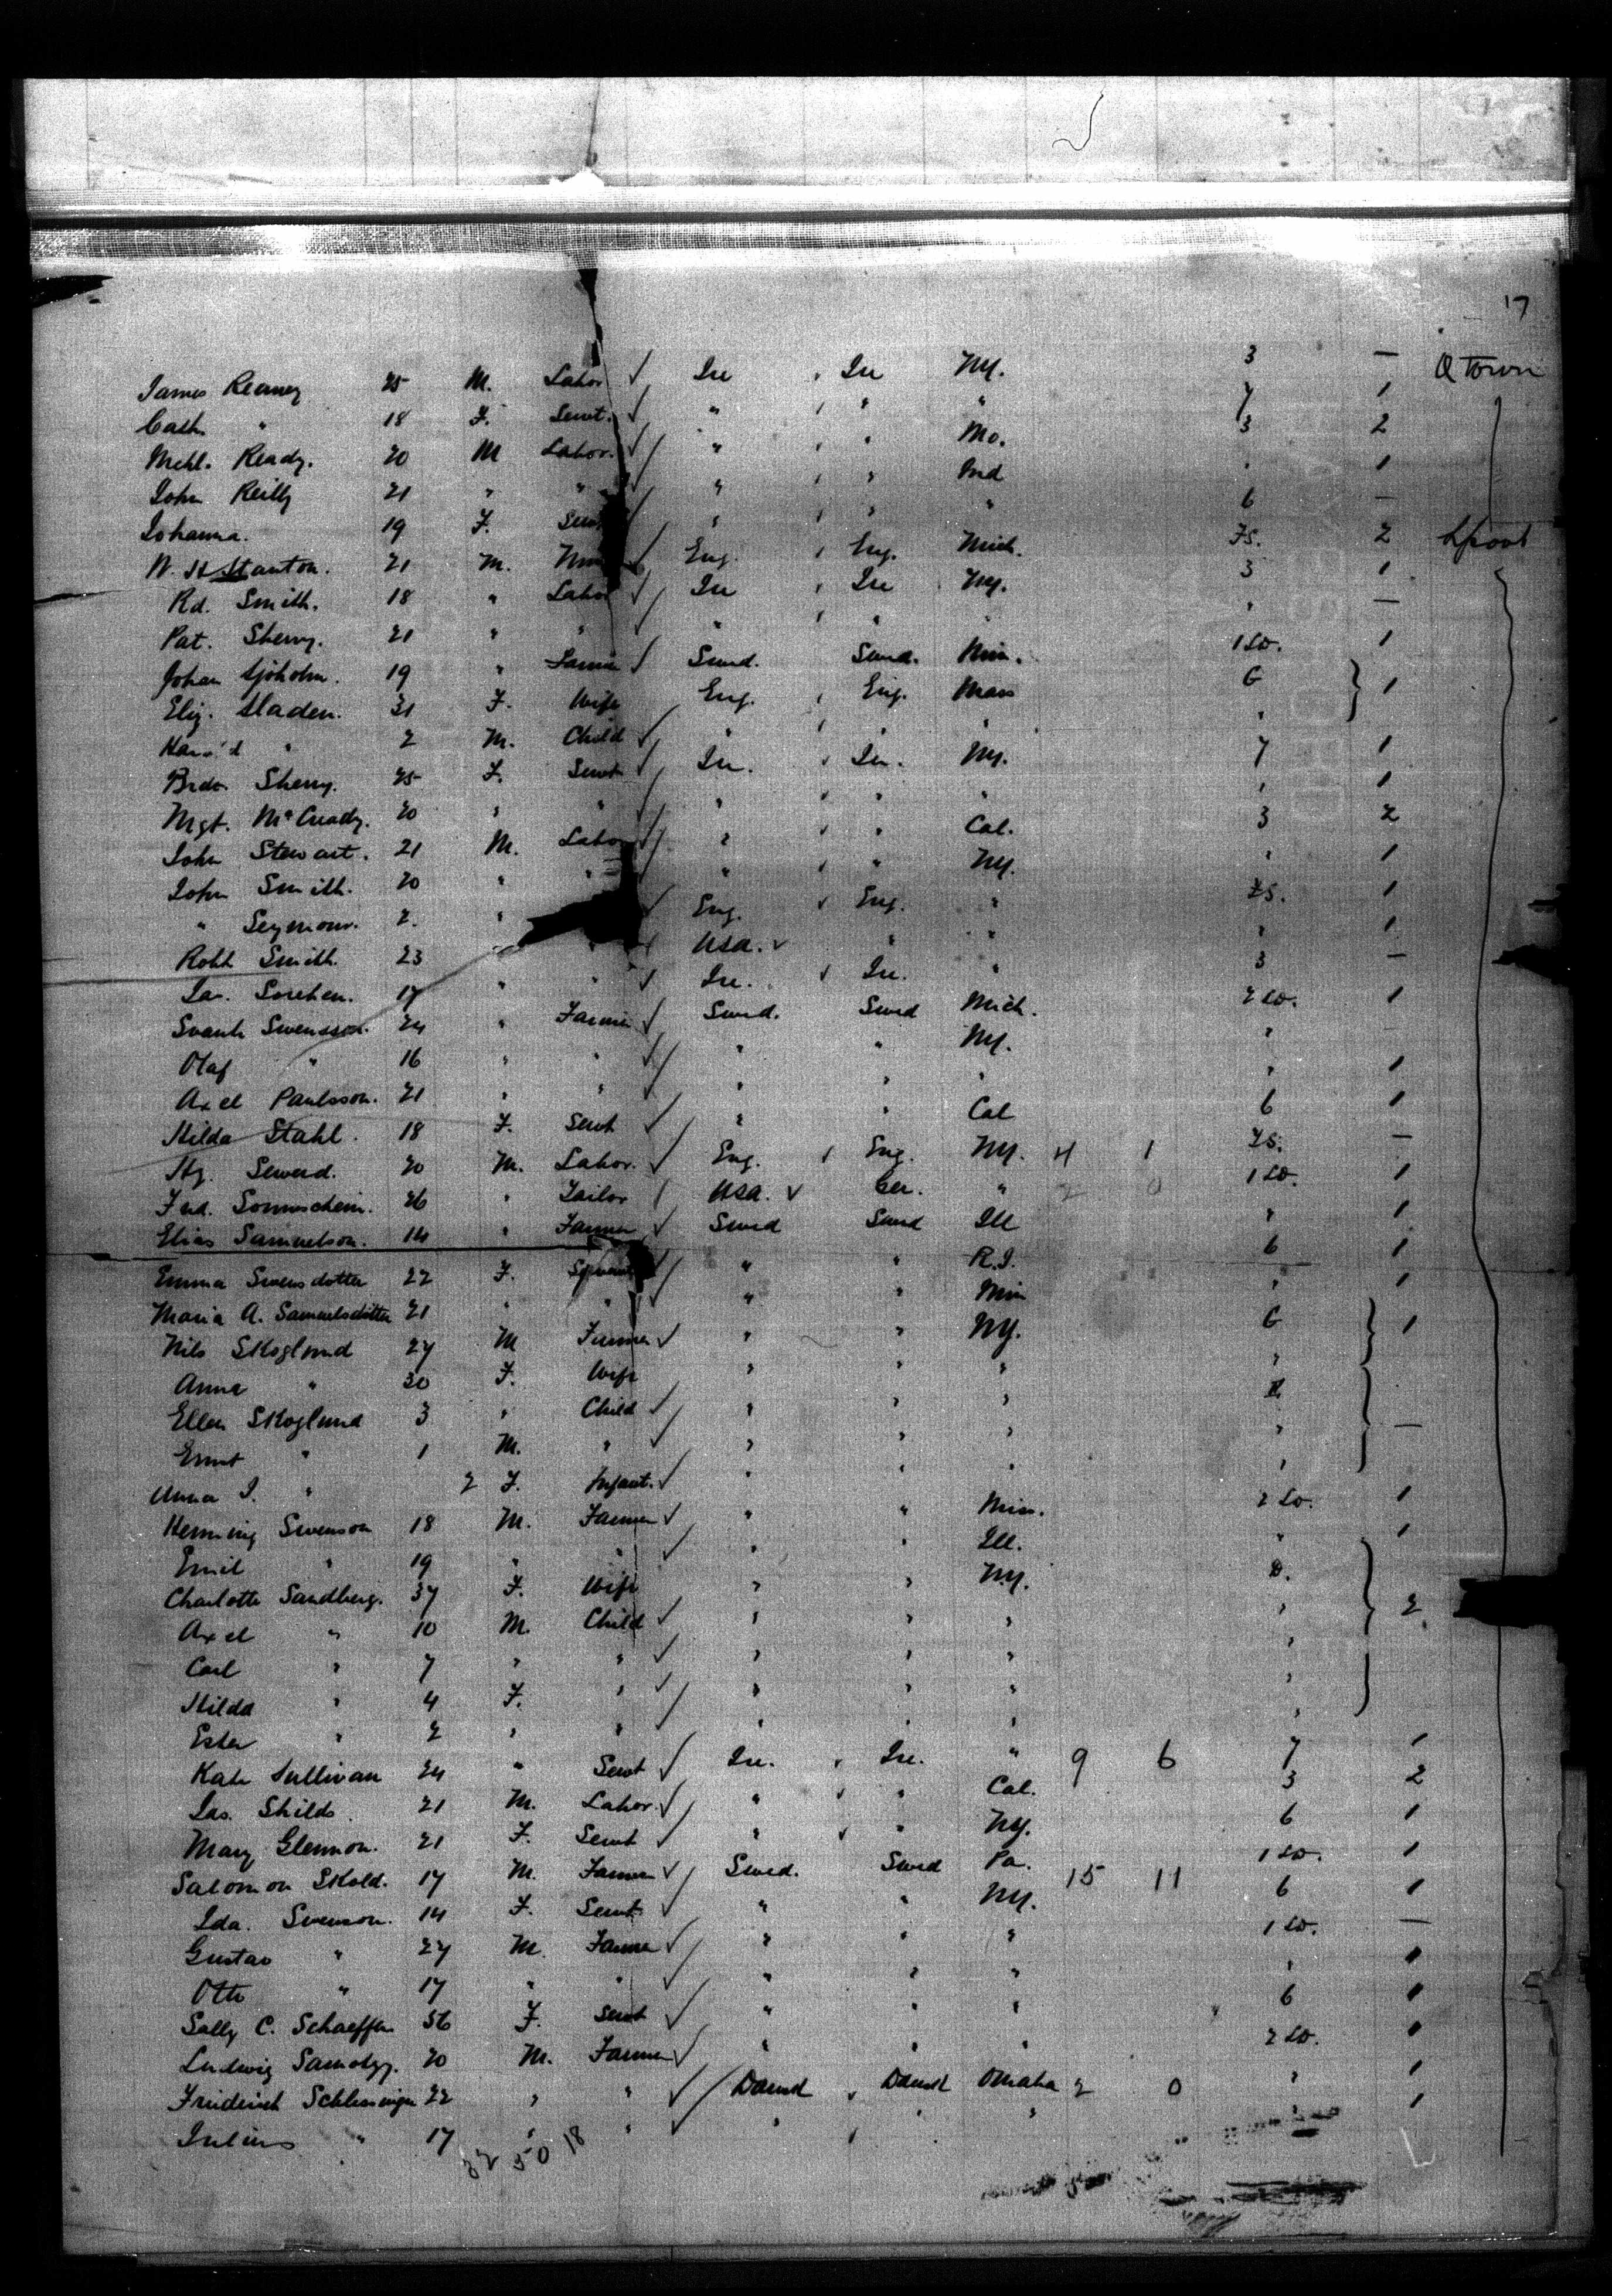 17
James Reaney 25 M. Labor ✓ Ire Ire NY. 3 — Q Town
Cath. " 18 F. Servt. ✓ " " " 7 1
Mchl. Ready. 20 M Labor. ✓ " " Mo. 3 2
John Reilly 21 " " " " Ind " 1
Johanna. 19 F. Servt " " " 6 —
W. H Stanton. 21 M. Eng. Eng. Mich. FS. 2 Lpool
Rd. Smith. 18 " Labor ✓ Ire Ire NY. 3 1
Pat. Sherry. 21 " " ✓ " " " " —
Johan Sjoholm. 19 " Farmer ✓ Swed. Swed. Min. 1 SD. 1
Eliz. Sladen. 31 F. Wife Eng. Eng. Mass G 1
Har 'd " 2 M. Child ✓ " " " "
Brdt. Sherry. 25 F. Servt ✓ Ire. Ire. NY. 7 1
Mgt. McCready. 20 " " ✓ " " " " 1
John Stewart. 21 M. Labor ✓ " " Cal. 3 2
John Smith. 20 " " " " NY. " 1
" Seymour. 2 " ✓ Eng. Eng. " FS. 1
Robt Smith. 23 " USA. " " " 1
Ja. 17 " " ✓ Ire. Ire. " 3 —
Swensson. 24 " Farmer ✓ Swed. Swed Mich. 2 SD. 1
Olaf " 16 " " ✓ " " NY. "
Axel Paulsson. 21 " " ✓ " " " " 1
Hilda Stahl. 18 F. Servt ✓ " " Cal 6 1
Hy. Seward. 20 M. Labor. ✓ Eng. Eng. NY. 4 1 FS. —
Frd. Sonnschein. 26 " Tailor USA. Ger. " 2 0 1 SD. 1
Elias Samuelson. 14 " Farmer ✓ Swed Swed Ill " 1
Emma Swensdotter 22 F. Servant ✓ " " R.I. 6 1
Maria A. Samuelsdotter 21 " " ✓ " " Min " 1
Nils Skoglund 27 M Farmer ✓ " " NY. G 1
Anna " 30 F. Wife " " " "
Ellen Skoglund 3 " Child ✓ " " "
Ernst " 1 M. " ✓ " " " " —
Anna I. " 2 F. Infant. ✓ " " " "
Henning Swenson 18 M. Farmer ✓ " " Min. 2 SD. 1
Emil " 19 " " ✓ " " Ill. " 1
Charlotte Sandberg. 37 F. Wife " " NY. D.
Axel " 10 M. Child ✓ " " " " 2
Carl " 7 " " ✓ " " " "
Hilda " 4 F. " ✓ " " " "
Ester " 2 " " ✓ " " " "
Kate Sullivan 24 " Servt ✓ Ire. Ire. " 9 6 7 1
Jas. Shilds 21 M. Labor. ✓ " " Cal. 3 2
Mary Glennon. 21 F. Servt ✓ " " NY. 6 1
Salomon Skold. 17 M. Farmer ✓ Swed. Swed Pa. 15 11 1 SD. 1
Ida. Svenson. 14 F. Servt. ✓ " " NY. 6 1
Gustav " 27 M. Farmer ✓ " " " 1 SD. —
Otto " 17 " " ✓ " " " " 1
Sally C. Schaeffer 56 F. Servt ✓ " " " 6 1
Ludwig 20 M. Farmer ✓ " " " 2 SD. 1
Friderich Schlessinger 22 " " ✓ Daned Daned Omaha 2 0 " 1
Julius " 17 " " ✓ " " " " 1
32 50 18